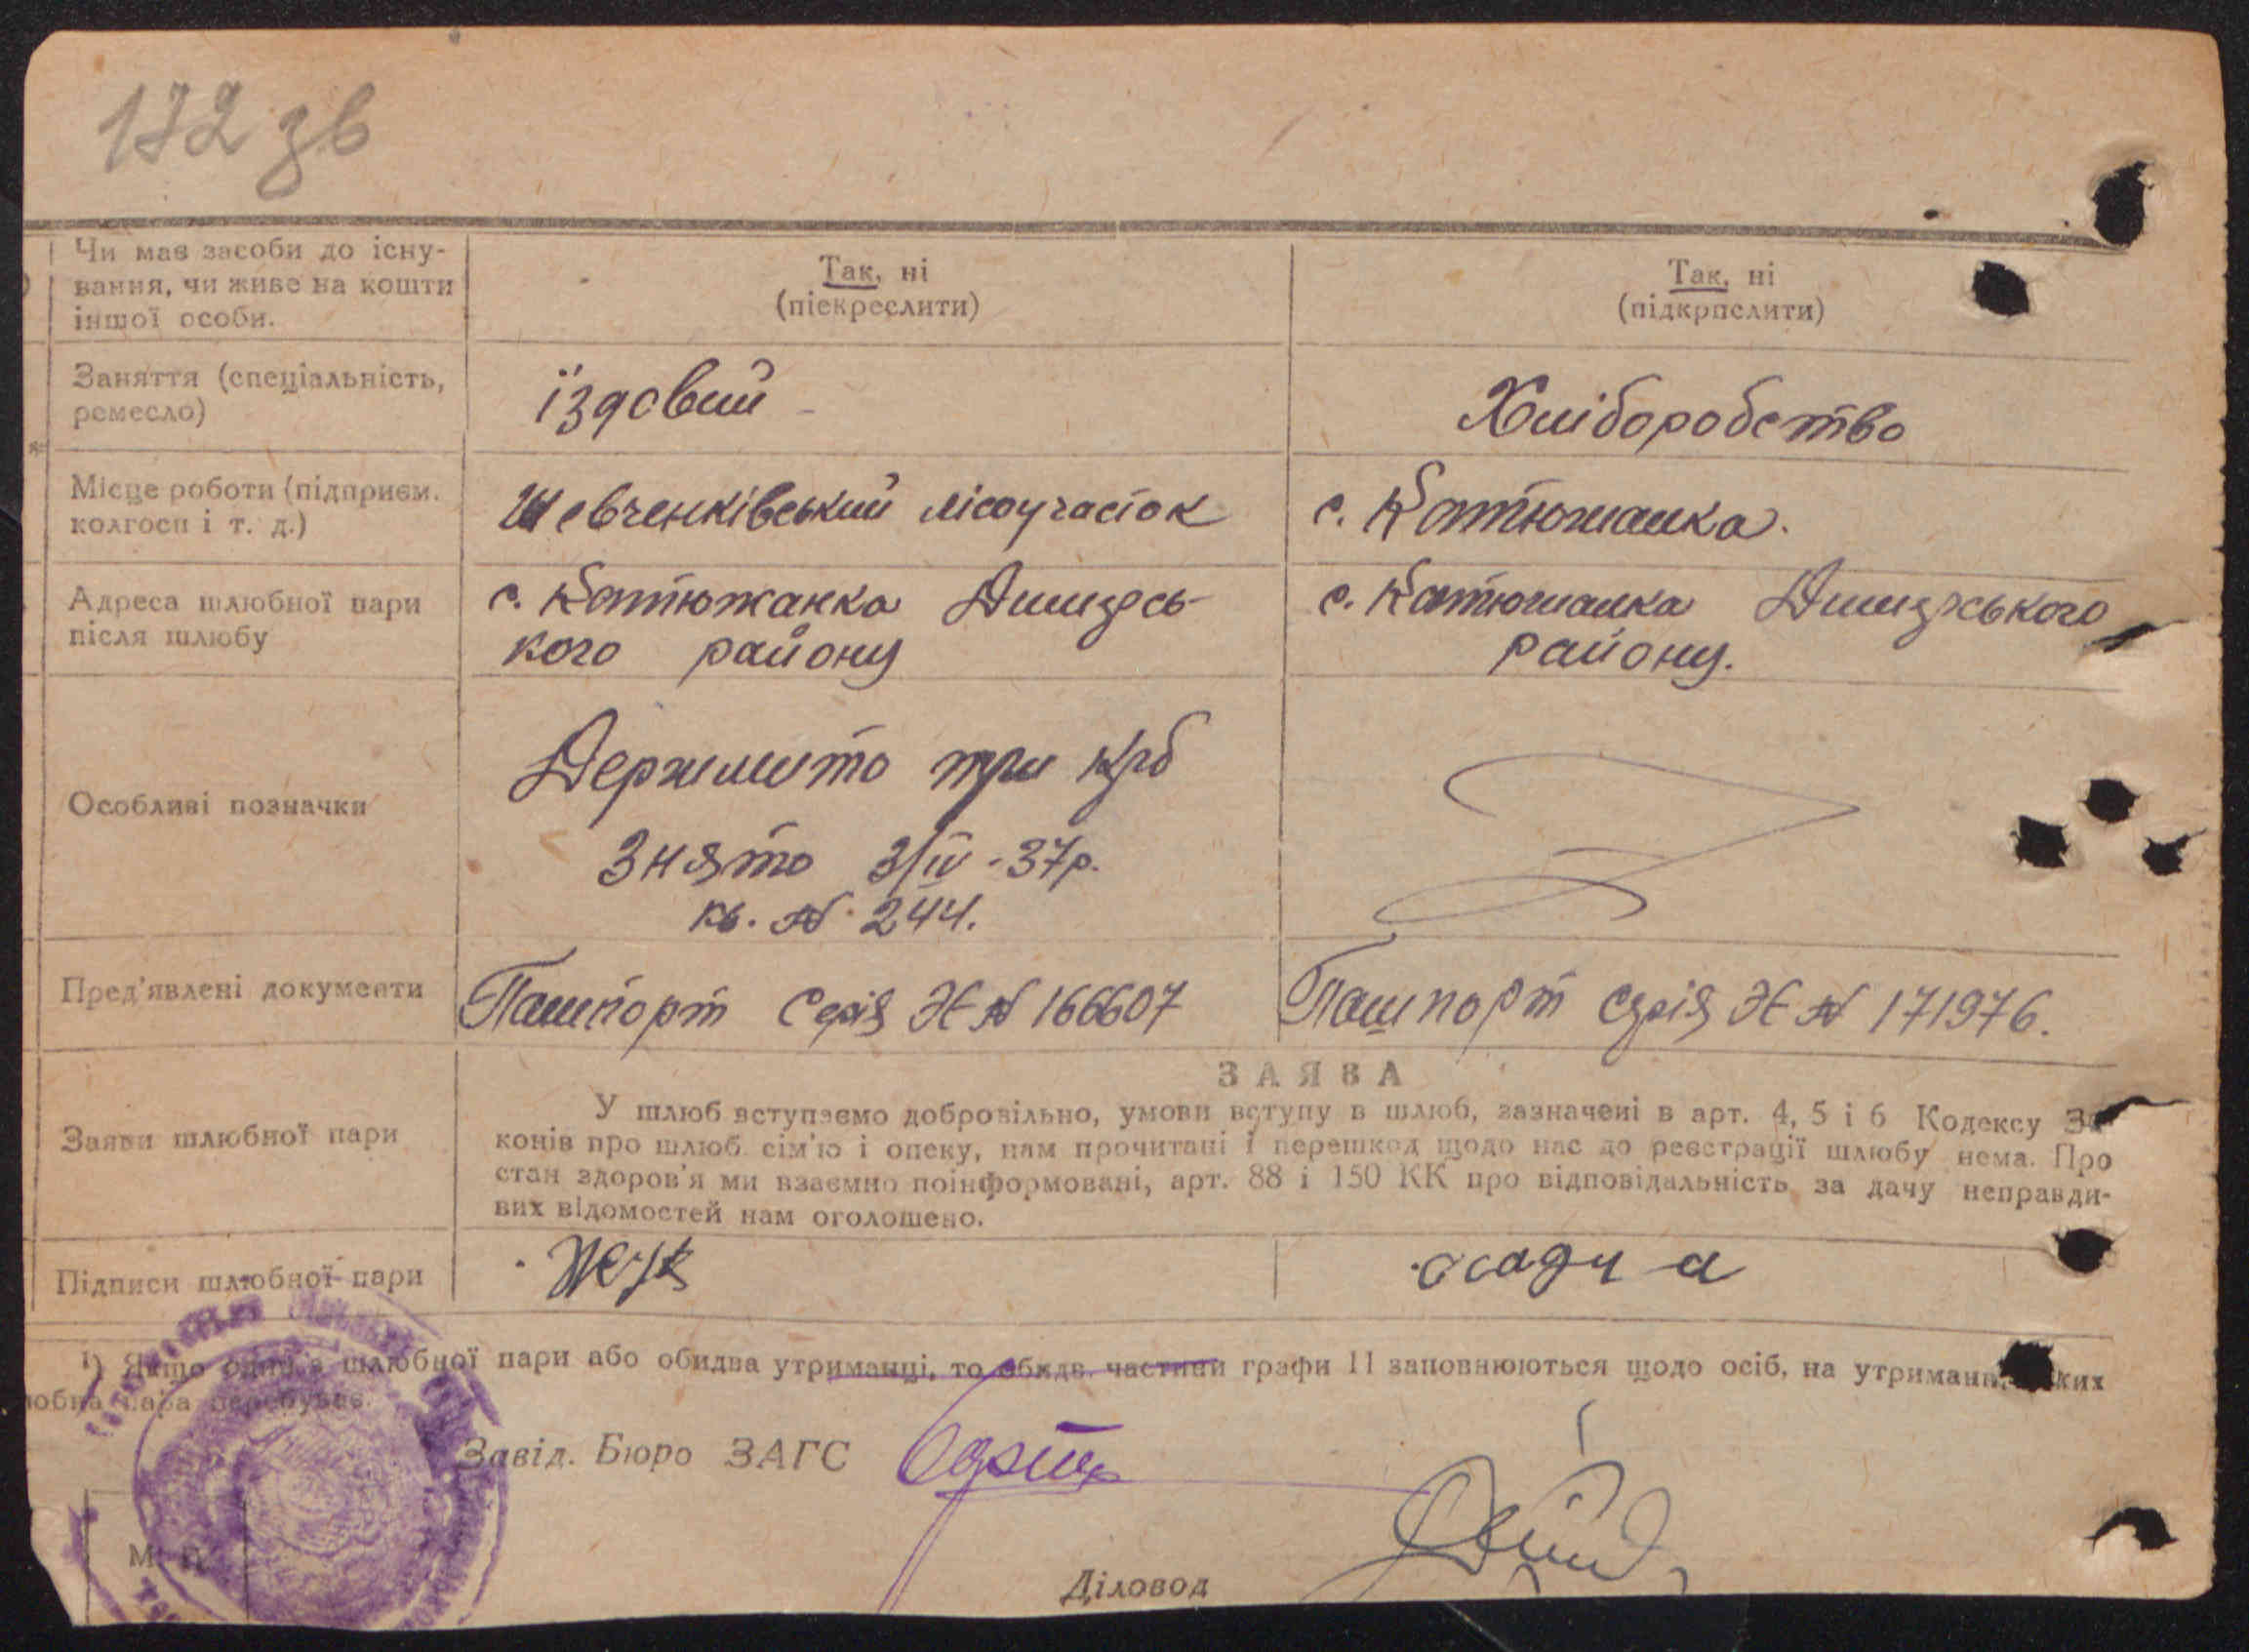 172 зв
Чи має засоби до існу-
вання, чи живе на кошти
іншої особи.
Так, ні
(піекреслити)
Так, ні
(підкрпслити)
Заняття (спеціальність,
ремесло)
їздовий
Хліборобство
Місце роботи (підприєм.
колгосп і т. д.)
Шевченківський лісоучасток
с. Катюжанка.
Адреса шлюбної пари
після шлюбу
с. Катюжанка Димерсь-
кого району
с. Катюжанка Димерського
району.
Особливі позначки
Держмито три крб
Знято 3/IV-37р.
кв. № 244.
Пред'явлені документи
Пашпорт Серія ЭЄ № 166607
Пашпорт серія ЭЄ № 171976.
Заяви шлюбної пари
ЗАЯВА
У шлюб вступаємо добровільно, умови вступу в шлюб, зазначені в арт. 4, 5 і 6 Кодексу За
конів про шлюб сім'ю і опеку, нам прочитані і перешкод щодо нас до реєстрації шлюбу нема. Про
стан здоров'я ми взаємно поінформовані, арт. 88 і 150 КК про відповідальність за дачу неправди-
вих відомостей нам оголошено.
Підписи шлюбної пари
Жук
осадч а
1) Якщо один з шлюбної пари або обидва утриманці, то обидв. частини графи 11 заповнюються щодо осіб, на утриманн. яких
юбна пара перебуває.
Завід. Бюро ЗАГС
М. П.
Діловод